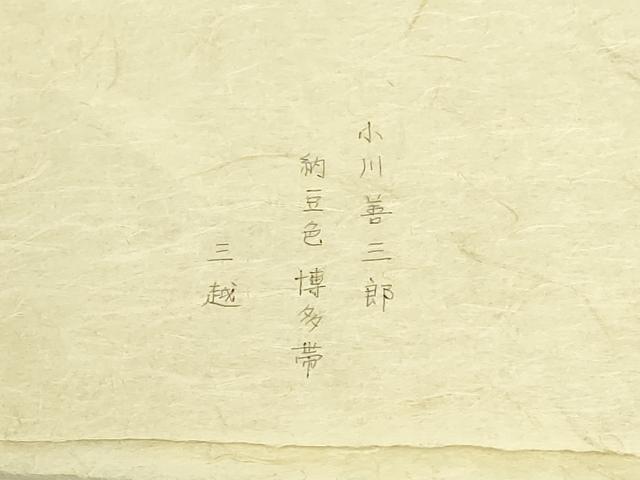 小川善三郎
納豆色 博多帯
三越